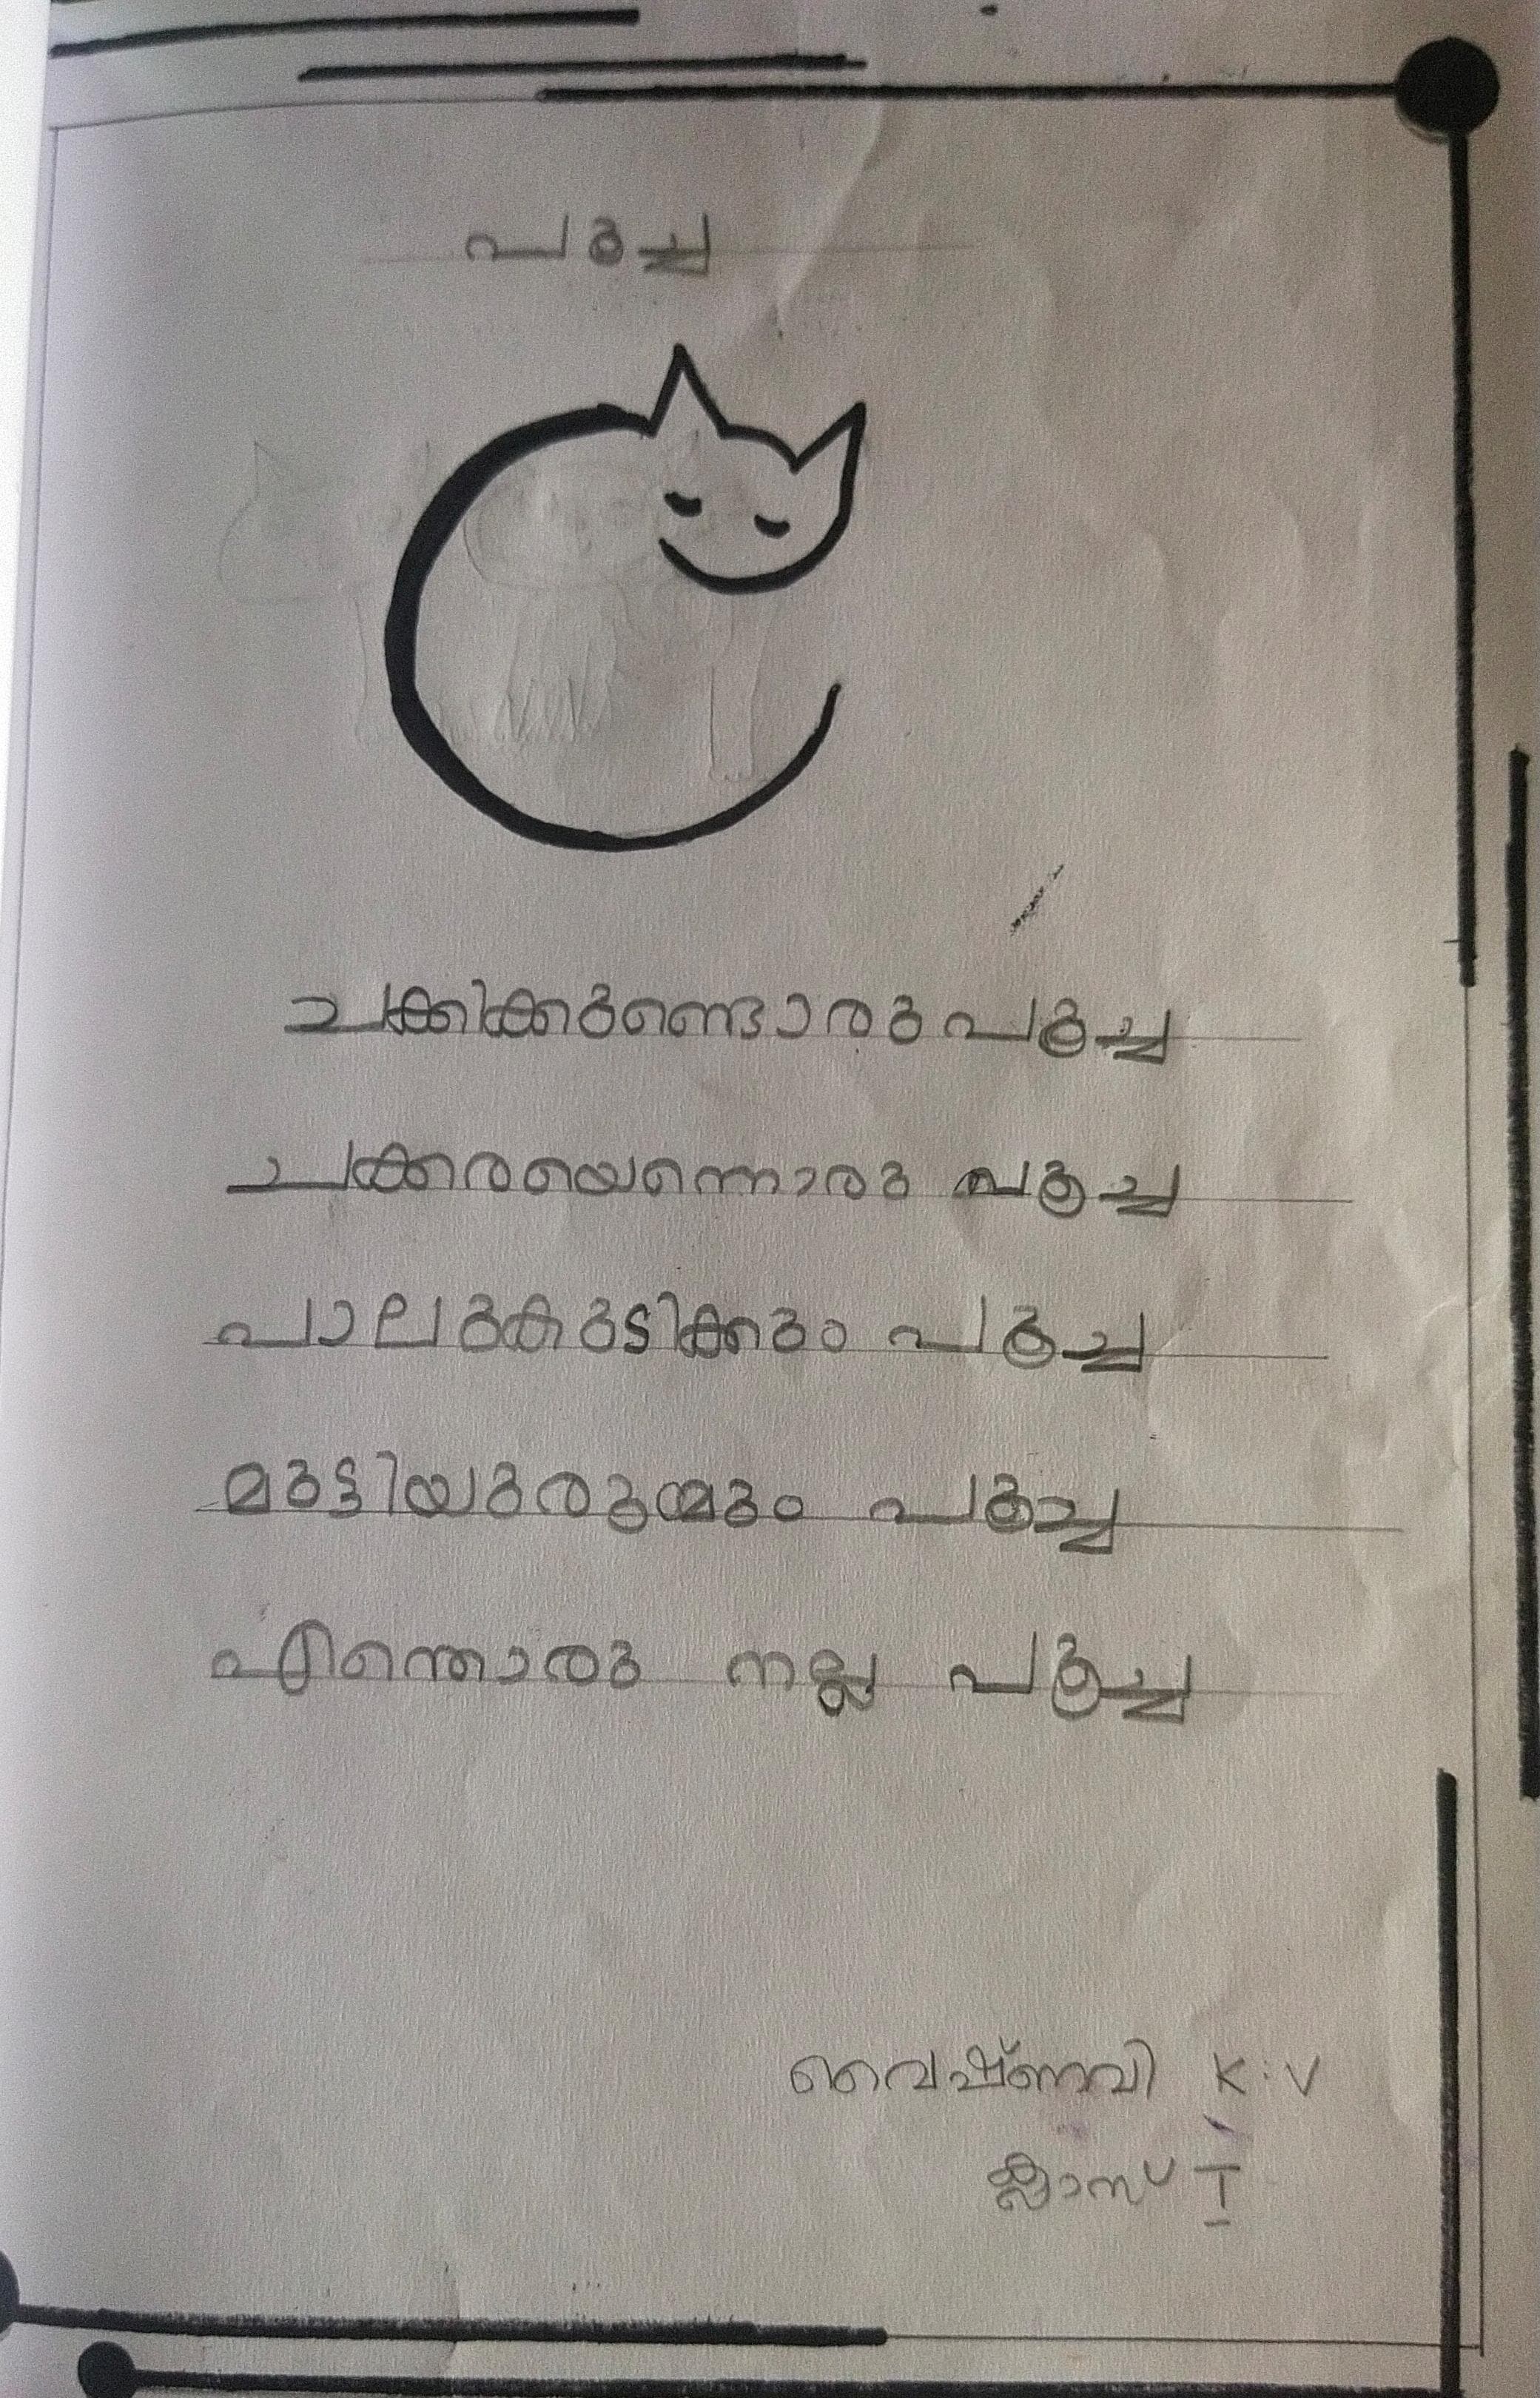 പുച്ച
ചക്കിക്കുണ്ടൊരു പൂച്ച
ചക്കരയെന്നൊരു പൂച്ച
പാലുകുടിക്കും പൂച്ച
മുട്ടിയുരുമ്മും പൂച്ച
എന്തൊരു നല്ല പൂച്ച
വൈഷ്ണവി K.V
ക്ലാസ് I